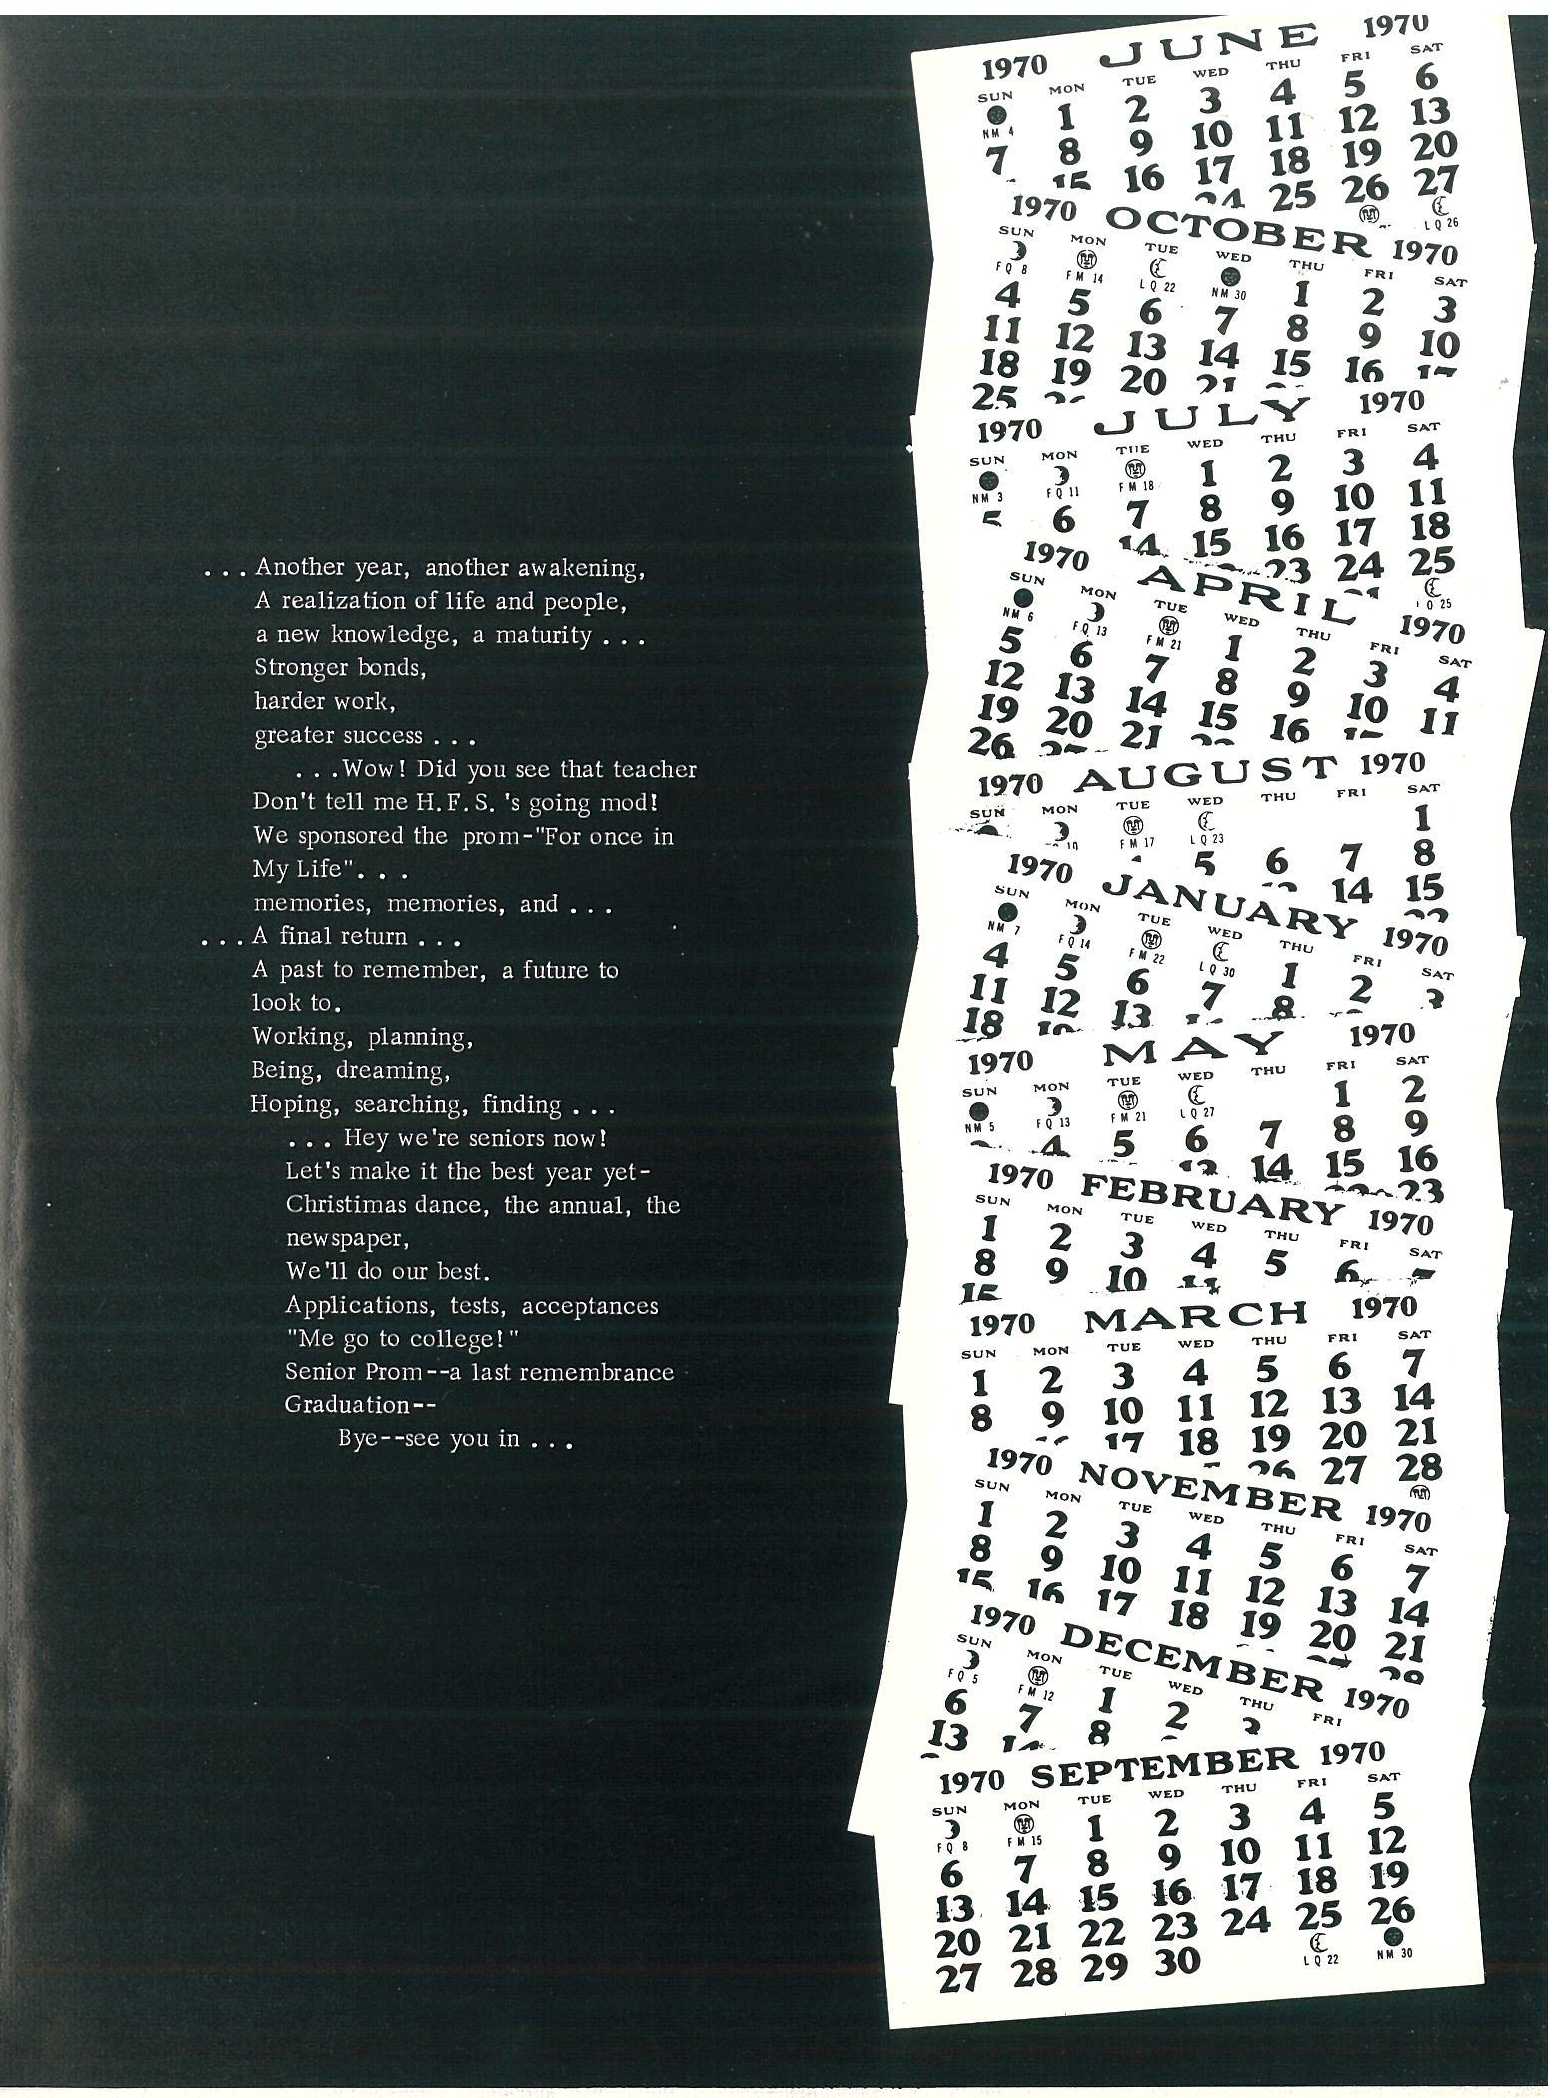 . . . Another year, another awakening,
A realization of life and people,
a new knowledge, a maturity . . .
Stronger bonds,
harder work,
greater success . . .
. . .Wow! Did you see that teacher
Don't tell me H.F.S. 's going mod!
We sponsored the prom-"For once in
My Life". . .
memories, memories, and . . .
. . . A final return . . .
A past to remember, a future to
look to.
Working, planning,
Being, dreaming,
Hoping, searching, finding . . .
. . . Hey we're seniors now!
Let's make it the best year yet-
Christimas dance, the annual, the
newspaper,
We'll do our best.
Applications, tests, acceptances
"Me go to college!"
Senior Prom--a last remembrance
Graduation--
Bye--see you in . . .
1970 JUNE 1970
SUN MON TUE WED THU FRI SAT
NM 4 1 2 3 4 5 6
7 8 9 10 11 12 13
15 16 17 18 19 20
24 25 26 27
LQ 26
1970 OCTOBER 1970
SUN MON TUE WED THU FRI SAT
FQ 8 FM 14 LQ 22 NM 30 1 2 3
4 5 6 7 8 9 10
11 12 13 14 15 16 17
18 19 20 21
25
1970 JULY 1970
SUN MON TUE WED THU FRI SAT
NM 3 FQ 11 FM 18 1 2 3 4
5 6 7 8 9 10 11
14 15 16 17 18
23 24 25
LQ 25
1970 APRIL 1970
SUN MON TUE WED THU FRI SAT
NM 6 FQ 13 FM 21 1 2 3 4
5 6 7 8 9 10 11
12 13 14 15 16 17
19 20 21
26 27
1970 AUGUST 1970
SUN MON TUE WED THU FRI SAT
FM 17 LQ 23 1
5 6 7 8
14 15
22
1970 JANUARY 1970
SUN MON TUE WED THU FRI SAT
NM 7 FQ 14 FM 22 LQ 30 1 2 3
4 5 6 7 8
11 12 13
18 19
1970 MAY 1970
SUN MON TUE WED THU FRI SAT
NM 5 FQ 13 FM 21 LQ 27 1 2
4 5 6 7 8 9
13 14 15 16
23
1970 FEBRUARY 1970
SUN MON TUE WED THU FRI SAT
1 2 3 4 5 6 7
8 9 10 11
15
1970 MARCH 1970
SUN MON TUE WED THU FRI SAT
1 2 3 4 5 6 7
8 9 10 11 12 13 14
17 18 19 20 21
26 27 28
1970 NOVEMBER 1970
SUN MON TUE WED THU FRI SAT
1 2 3 4 5 6 7
8 9 10 11 12 13 14
15 16 17 18 19 20 21
28
1970 DECEMBER 1970
SUN MON TUE WED THU FRI
FQ 5 FM 12 1 2 3
6 7 8
13 14
1970 SEPTEMBER 1970
SUN MON TUE WED THU FRI SAT
FQ 8 FM 15 1 2 3 4 5
6 7 8 9 10 11 12
13 14 15 16 17 18 19
20 21 22 23 24 25 26
27 28 29 30 LQ 22 NM 30